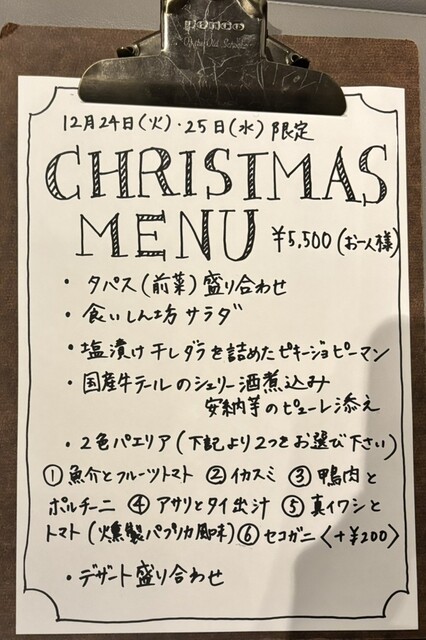 PENCO
12月24日(火)・25日(水)限定
CHRISTMAS
MENU ¥5,500(お一人様)
・タパス(前菜)盛り合わせ
・食いしん坊サラダ
・塩漬け干しダラを詰めたピキージョピーマン
・国産牛テールのシェリー酒煮込み
安納芋のピューレ添え
・2色パエリア(下記より2つをお選び下さい)
①魚介とフルーツトマト ②イカスミ ③鴨肉と
ポルチーニ ④アサリとタイ出汁 ⑤真イワシと
トマト(燻製パプリカ風味)⑥セコガニ〈+¥200〉
・デザート盛り合わせ